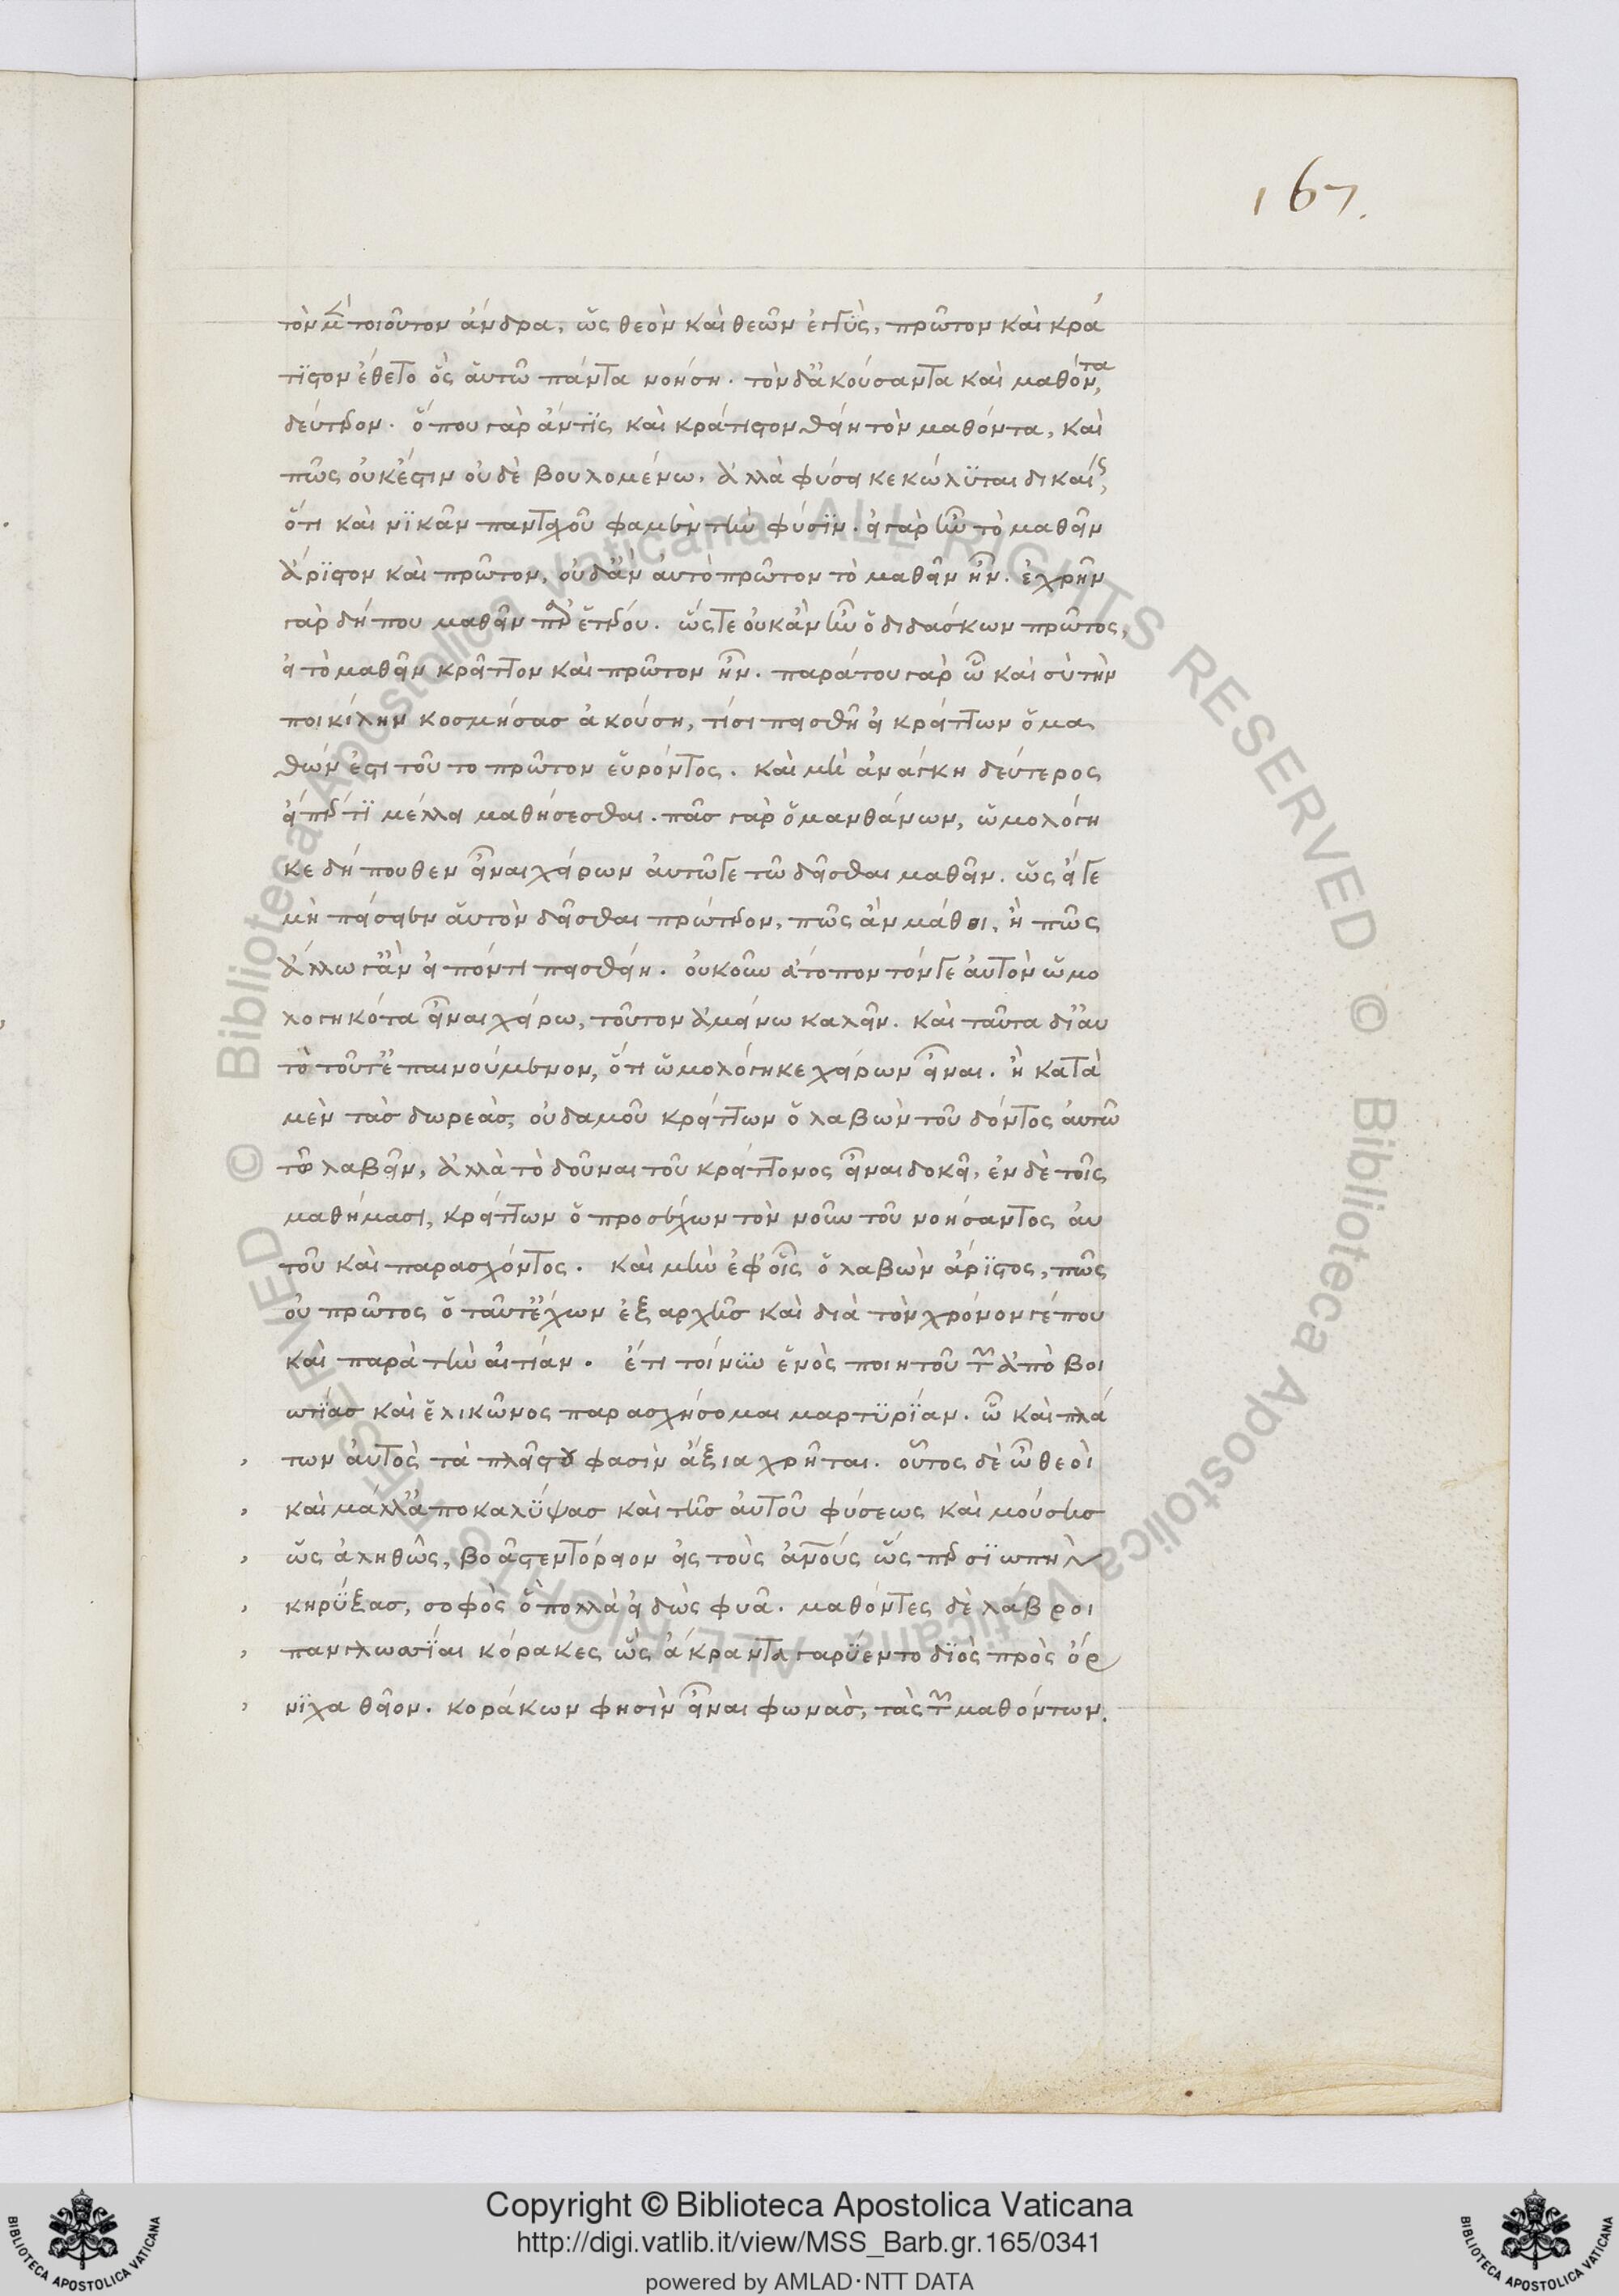 167.
τὸν μὲν τοιοῦτον ἄνδρα, ὡς θεὸν καὶ θεῶν ἐγγὺς, πρῶτον καὶ κρά
τιστον ἔθετο ὃς αὑτῶ πάντα νοήση. τὸν δ' ἀκούσαντα καὶ μαθόντα,
δεύτερον. ὅπου γὰρ ἄν τις καὶ κράτιστον θείη τὸν μαθόντα, καὶ
πῶς οὐκ ἔστιν οὐδὲ βουλομένω. ἀλλὰ φύσει κεκώλυται δικαίως,
ὅτι καὶ νικᾶν πανταχοῦ φαμὲν τὴν φύσιν. εἰ γὰρ ἦν τὸ μαθεῖν
ἄριστον καὶ πρῶτον, οὐδ' ἂν αὐτὸ πρῶτον τὸ μαθεῖν ἦν. ἐχρῆν
γὰρ δήπου μαθεῖν παρ' ἑτέρου. ὥστε οὐκ ἂν ἦν ὁ διδάσκων πρῶτος,
εἰ τὸ μαθεῖν κρεῖττον καὶ πρῶτον ἦν. παρά του γὰρ ὦ καὶ σὺ τὴν
ποικίλην κοσμήσας ἀκούση, τίσι πεισθῆ εἰ κρείττων ὁ μα
θών ἐστι τοῦ τὸ πρῶτον εὑρόντος. καὶ μὴν ἀνάγκη δεύτερος
εἴπερ τι μέλλει μαθήσεσθαι. πᾶς γὰρ ὁ μανθάνων, ὡμολόγη
κε δήπουθεν εἶναι χείρων αὐτῶ γε τῶ δεῖσθαι μαθεῖν. ὡς εἴ γε
μὴ πείσειεν αὑτὸν δεῖσθαι πρότερον, πῶς ἂν μάθοι, ἢ πῶς
ἄλλω γ' ἂν εἰπόντι πεισθείη. οὐκοῦν ἄτοπον τόν γε αὐτὸν ὡμο
λογηκότα εἶναι χείρω, τοῦτον ἀμείνω καλεῖν. καὶ ταῦτα δι' αυ
τὸ τοῦτ' ἐπαινούμενον, ὅτι ὡμολόγηκε χείρων εἶναι. ἢ κατὰ
μὲν τὰς δωρεὰς, οὐδαμοῦ κρείττων ὁ λαβὼν τοῦ δόντος αὐτῶ
τῶ λαβεῖν, ἀλλὰ τὸ δοῦναι τοῦ κρείττονος εἶναι δοκεῖ, ἐν δὲ τοῖς
μαθήμασι, κρείττων ὁ προσέχων τὸν νοῦν τοῦ νοήσαντος αὐ
τοῦ καὶ παρασχόντος. καὶ μὴν ἐφ' οἷς ὁ λαβὼν ἄριστος, πῶς
οὐ πρῶτος ὁ ταῦτ' ἔχων ἐξ αρχῆς καὶ διὰ τὸν χρόνον γέ που
καὶ παρὰ τὴν αἰτίαν. ἔτι τοίνυν ἑνὸς ποιητοῦ τῶν ἀπὸ βοι
ωτίας καὶ ἑλικῶνος παρασχήσομαι μαρτυρίαν. ὧ καὶ πλά
των αὐτὸς τὰ πλείστου φασὶν ἄξια χρῆται. οὗτος δὲ ὦ θεοὶ
καὶ μάλ' ἀποκαλύψας καὶ τῆς αὐτοῦ φύσεως καὶ μούσης
ὡς ἀληθῶς, βοᾶ στεντόρειον εἰς τοὺς ἀνους ὡς περ σιωπὴν
κηρύξας, σοφὸς ὁ πολλὰ εἰδὼς φυᾶ. μαθόντες δὲ λάβροι
παγγλωσσίαι κόρακες ὣς ἄκραντα γαρύεντο διὸς πρὸς ὄρ
νιχα θεῖον. κοράκων φησὶν εἶναι φωνὰς, τὰς τῶν μαθόντων.
Copyright © Biblioteca Apostolica Vaticana
http://digi.vatlib.it/view/MSS_Barb.gr.165/0341
powered by AMLAD·NTT DATA